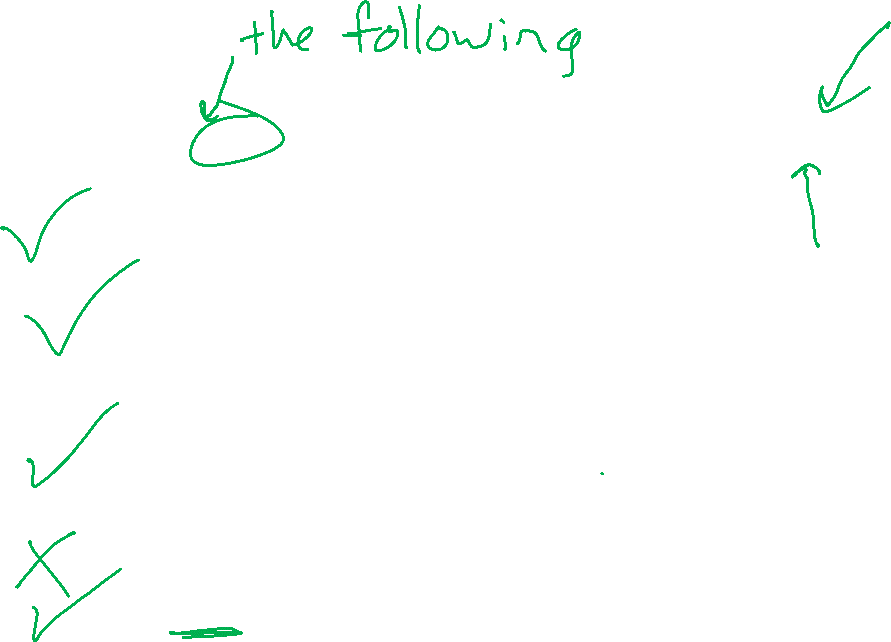 the following